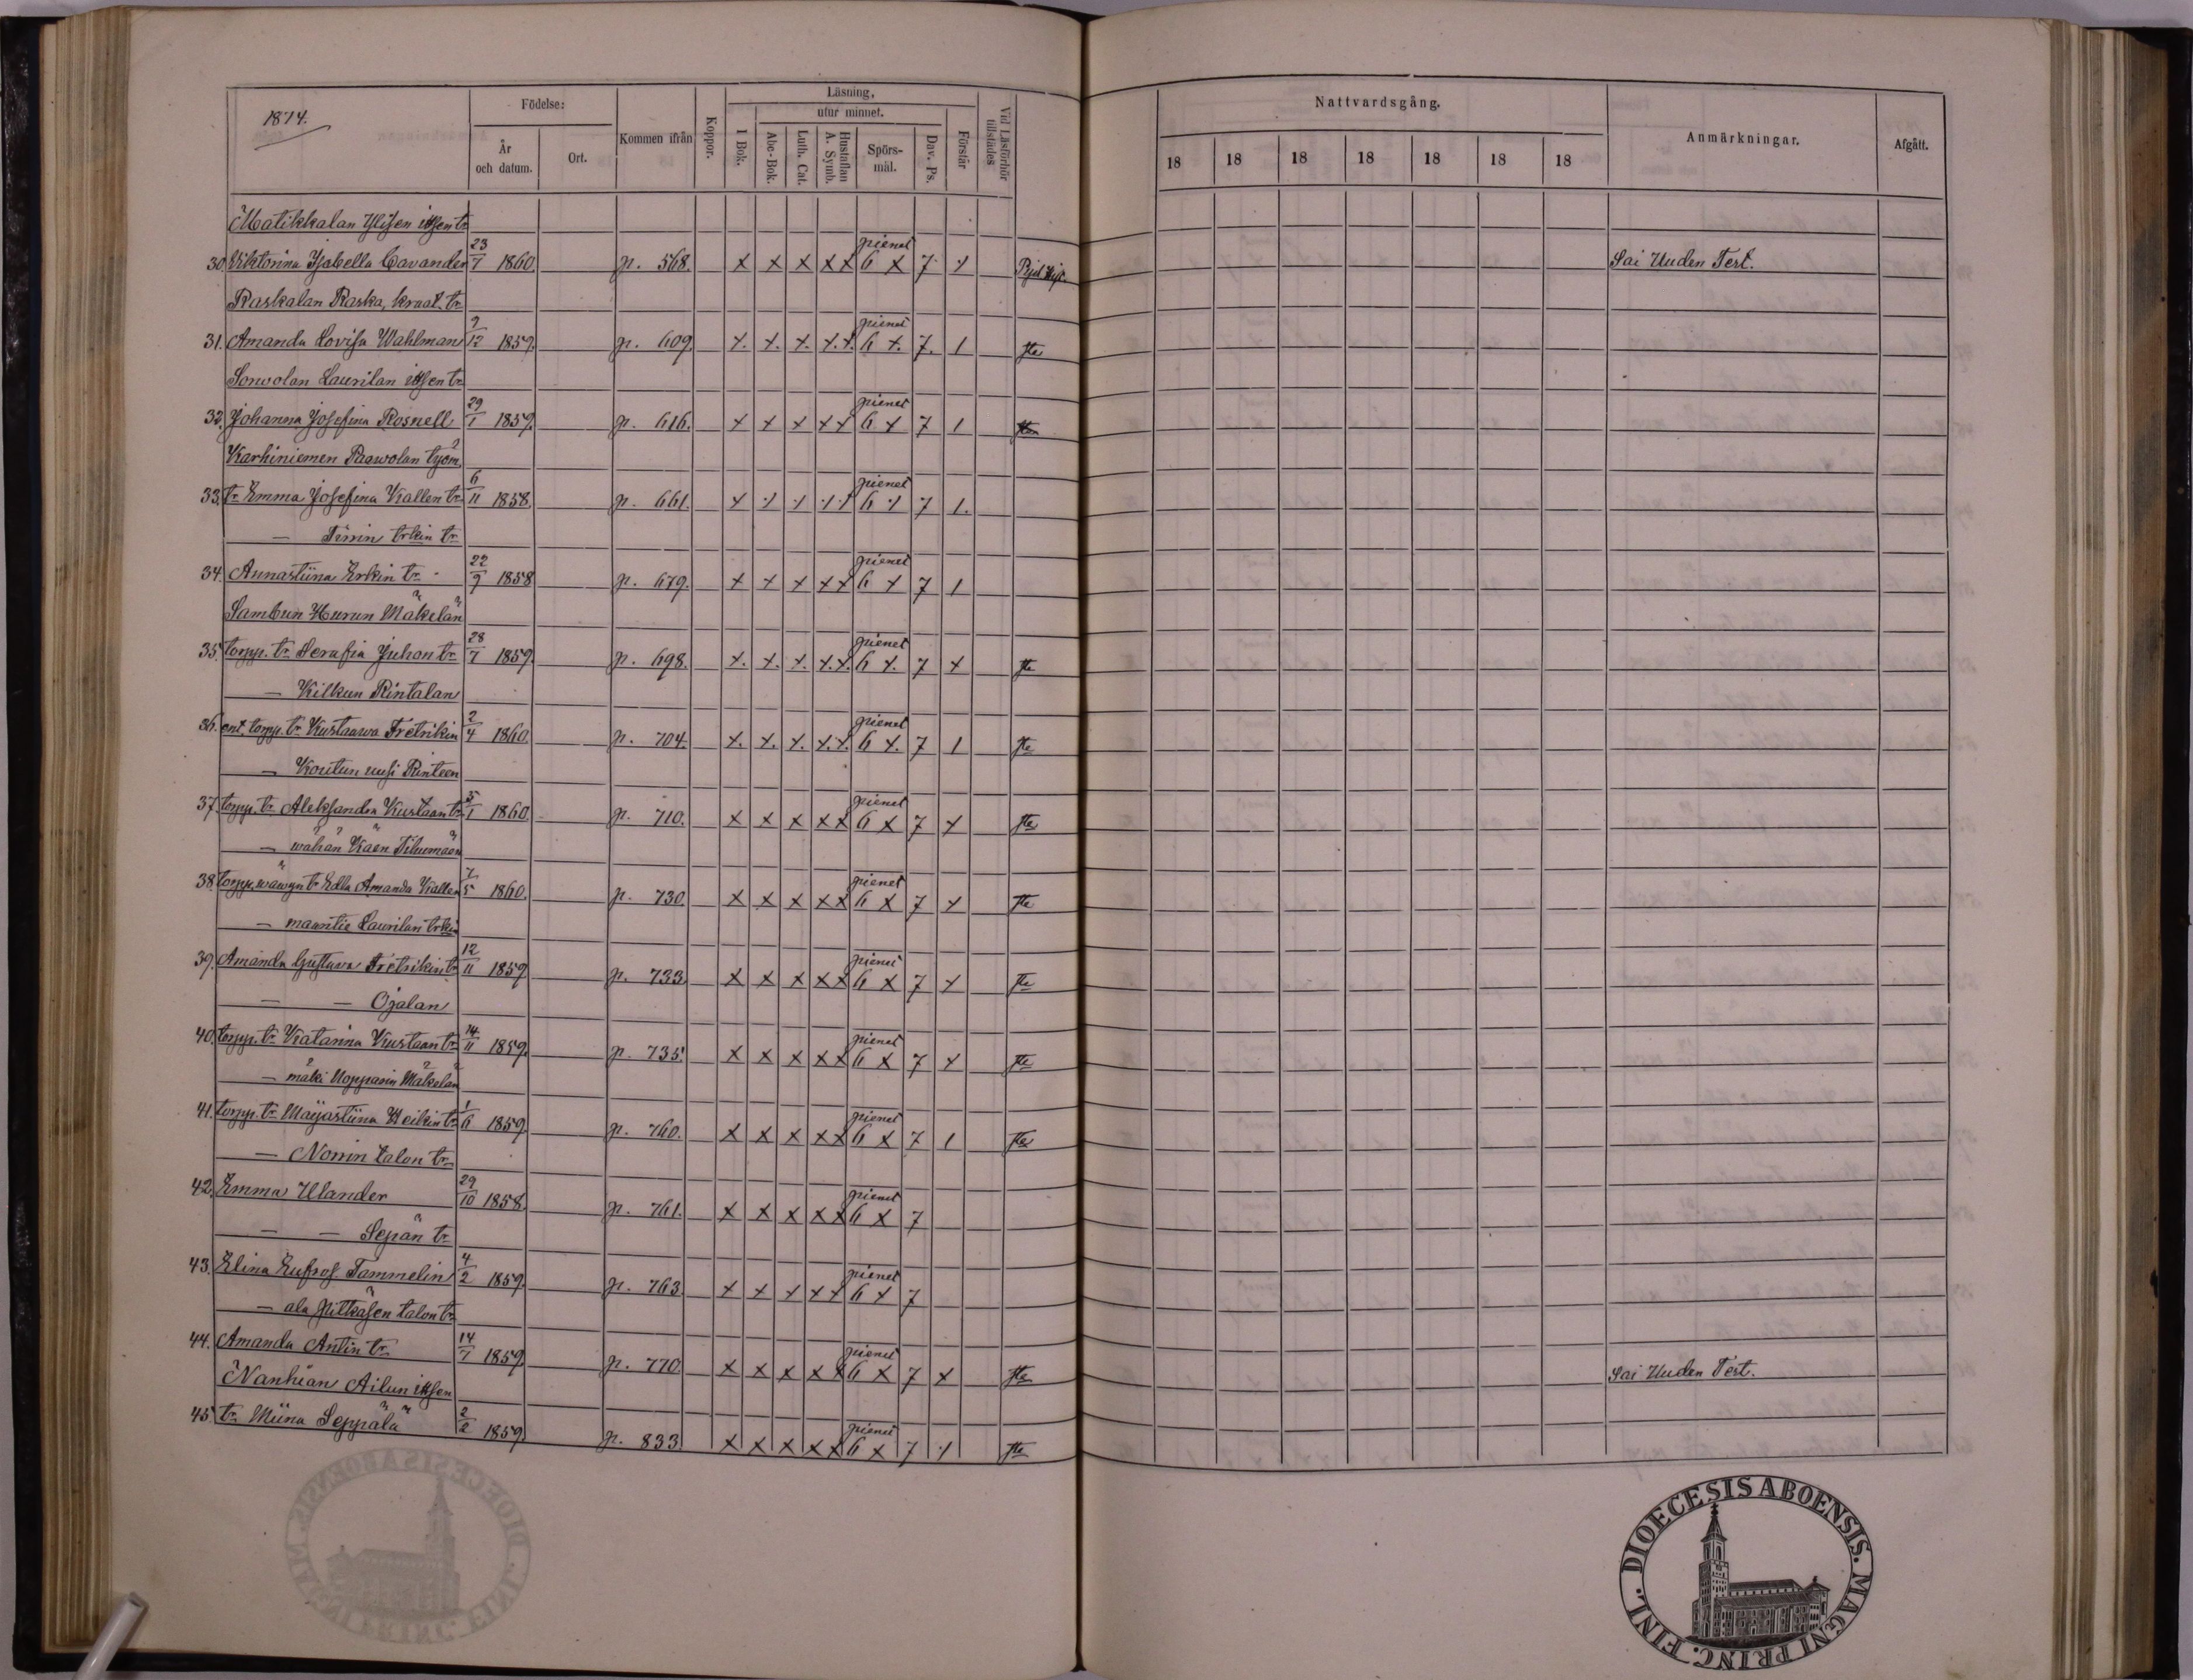 1874.
Födelse:
År och datum.
Ort.
Kommen ifrån
Koppor.
Läsning,
utur minnet.
I Bok.
Abc-Bok.
Luth. Cat.
Hustaflan A. Symb.
Spörs-mål.
Dav. Ps.
Förstår
Vid Läsförhör tillstädes
Nattvardsgång.
18 18 18 18 18 18 18
Anmärkningar.
Afgått.
Matikkalan Ylisen itsen tr
30. Viktorina Isabella Cavander 23/7 1860. p. 568. x x x x x pienet 6 x 7 Sai Uuden Test.
Raskalan Raska, kraat. tr
31. Amanda Lovisa Wahlman 9/12 1859. p. 609. x. x. x. x. x. pienet 6 x. 7. 1
Sorwolan Laurilan itsen tr
32. Johanna Josefina Rosnell 29/1 1859. p. 616. x x x x x pienet 6 x 7 1
Karhiniemen Paawolan työm.
33. tr Emma Josefina Kallen tr 6/11 1858. p. 661. pienet 6 7 1.
— Firrin trkin tr
34. Annastiina Erkin tr 22/9 1858 p. 679. x x x x x pienet 6 x 7 1
Sambun Hurun Mäkelän
35. torpp. tr Serafia Juhon tr 28/7 1859. p. 698. x. x. x. x. x. pienet 6 x. 7 x
— Kilkun Rintalan
36. ent. torpp. tr Kustaawa Fretrikin 2/4 1860. p. 704. x. x. x. x. x. pienet 6 x. 7 1
— Koutun uusi Rinteen
37. torpp. tr Aleksandra Kustaan tr 5/1 1860. p. 710. x x x x x pienet 6 x 7 x
— wähän Käen Tilumäen
38. torpp. wäwyn tr Edla Amanda Kallen 7/5 1860. p. 730. x x x x x pienet 6 x 7 x
— maantie Laurilan trkin
39. Amanda Gustava Fretrikin tr 12/11 1859 p. 733 x x x x x pienet 6 x 7 x
— — Ojalan
40. torpp. tr Katarina Kustaan tr 14/11 1859. p. 735. x x x x x pienet 6 x 7 x
— mäki Uopparin Mäkelän
41. torpp. tr Maijastiina Heikin tr 1/6 1859. p. 760. x x x x x pienet 6 x 7 1
— Norrin talon tr
42. Emma Ulander 29/10 1858. p. 761. x x x x x pienet 6 x 7
— — Sepän tr
43. Elina Eufros. Tammelin 4/2 1859. p. 763. x x x x x pienet 6 x 7
— ala Pitkäsen talon tr
44. Amanda Antin tr 14/7 1859. p. 770. x x x x x pienet 6 x 7 x Sai Uuden Test.
Nanhian Ailun itsen
45. tr Miina Seppälä 2/2 1859. p. 833 x x x x x pienet 6 x 7
DIOECESIS ABOENSIS. MAGNI PRINC. FINL.